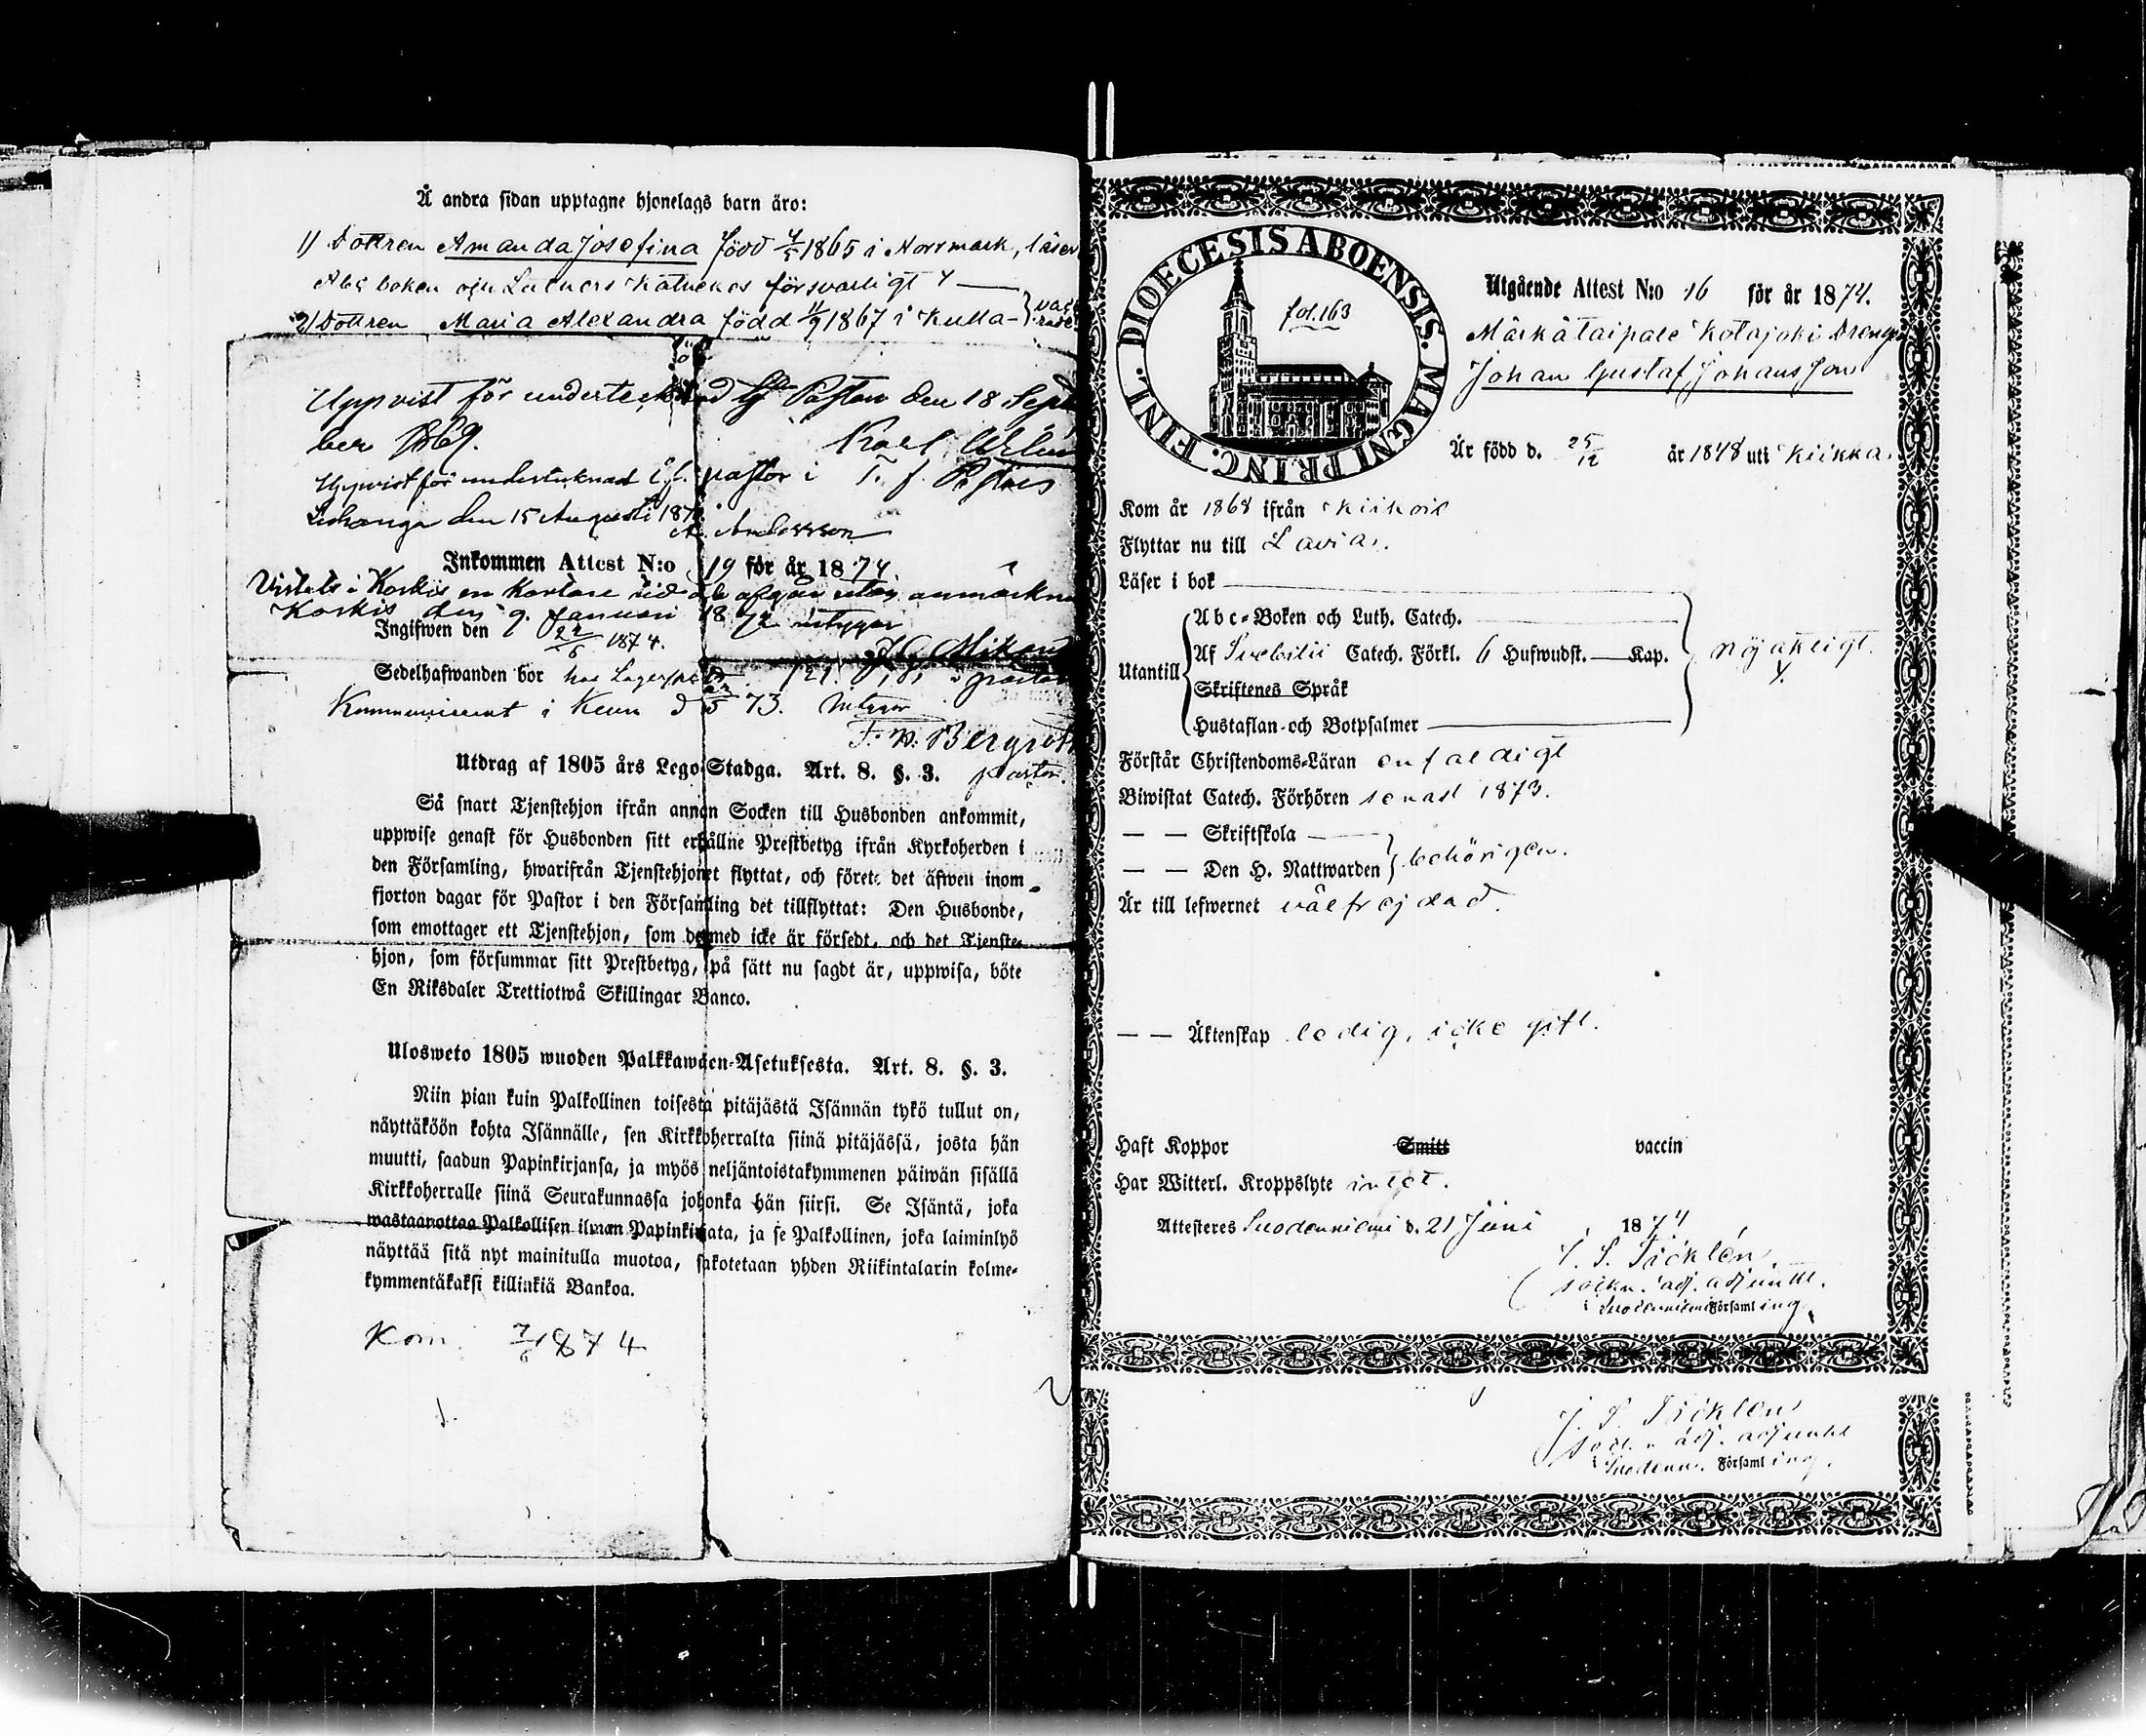 Å andra sidan upptagne hjonelags barn äro:
1) Dottren Amanda Josefina född 4/5 1865 i Norrmark, läser
Abc boken och Luthers Katheches försvarligt
2) Dottren Maria Alexandra född 11/9 1867 i Kulla-
Uppvist för undertecknad Pastor den 18 Septem
ber 1869. Karl
T. f. Pastor
Uppvist för undertecknad pastor i
den 15 Augusti 187
A. Andersson
Inkommen Attest N:o 19 för år 1874.
Vistats i Korkis en kortare tid utan anmärkn
Korkis den 9. Januari 1872 intygar
Ingifwen den 22/6 1874.
Sedelhafwanden bor hos
Kommunicerat i Kemi d 73. intygar
F. W. Bergroth
pastor.
Utdrag af 1805 års Lego-Stadga. Art. 8. §. 3.
Så snart Tjenstehjon ifrån annan Socken till Husbonden ankommit,
uppwise genast för Husbonden sitt erhållne Prestbetyg ifrån Kyrkoherden i
den Församling, hwarifrån Tjenstehjonet flyttat, och förete det äfwen inom
fjorton dagar för Pastor i den Församling det tillflyttat: Den Husbonde,
som emottager ett Tjenstehjon, som dermed icke är försedt, och det Tjenste-
hjon, som försummar sitt Prestbetyg, på sätt nu sagdt är, uppwisa, böte
En Riksdaler Trettiotwå Skillingar Banco.
Ulosweto 1805 wuoden Palkkawäen-Asetuksesta. Art. 8. §. 3.
Niin pian kuin Palkollinen toisesta pitäjästä Isännän tykö tullut on,
näyttäköön kohta Isännälle, sen Kirkkoherralta siinä pitäjässä, josta hän
muutti, saadun Papinkirjansa, ja myös neljäntoistakymmenen päiwän sisällä
Kirkkoherralle siinä Seurakunnassa johonka hän siirsi. Se Isäntä, joka
wastaanottaa Palkollisen ilman Papinkirjata, ja se Palkollinen, joka laiminlyö
näyttää sitä nyt mainitulla muotoa, sakotetaan yhden Riikintalarin kolme-
kymmentäkaksi killinkiä Bankoa.
Kom. 7/6 1874
DIOECESIS ABOENSIS. MAGNI PRINC. FINL.
fol. 163
Utgående Attest N:o 16 för år 1874.
Märkätaipale Kotajoki Drengen
Johan Gustaf Johansson
Är född d. 25/12 år 1848 uti Kiikka.
Kom år 1868 ifrån Kiikois
Flyttar nu till Lavia.
Läser i bok
Utantill
Abc-Boken och Luth. Catech.
Af Svebilii Catech. Förkl. 6 Hufwudst. Kap. nöjaktigt.
Skriftenes Språk
Hustaflan- och Botpsalmer
Förstår Christendoms-Läran enfaldigt
Biwistat Catech. Förhören senast 1873.
— — Skriftskola
— — Den H. Nattwarden behörigen.
Är till lefwernet välfrejdad.
— — Äktenskap ledig, icke gift.
Haft Koppor Smitt vaccin
Har Witterl. Kroppslyte intet.
Attesteres Suodenniemi d. 21 Juni 1874
J. S. Sjöklén
sockn. adj. adjunkt.
i Suodenniemi Församling.
J. S. Sjöklen
sockn. adj. adjunkt
i Suodenn. Församling.